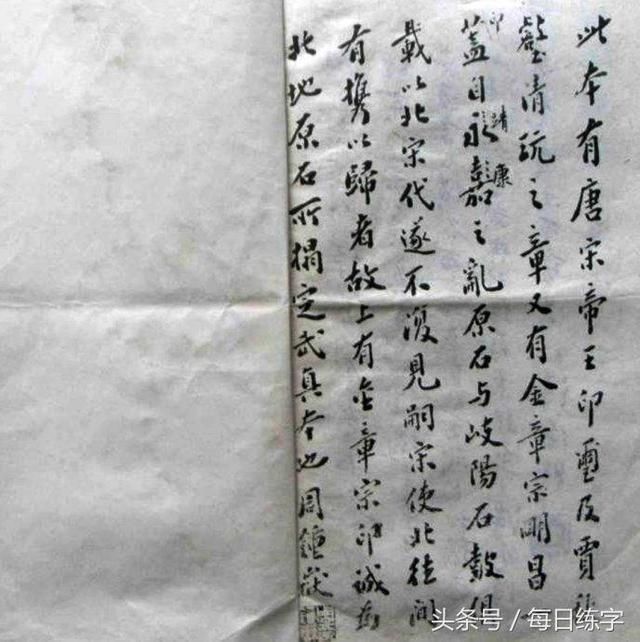 此本有唐宋帝王印璽及賈
壑清玩之章又有金章宗明昌
印
蓋自永嘉之亂原石与岐陽石鼓俱
靖康
載以北宋代遂不復見嗣宗使北往間
有攜以歸者故上有金章宗印誠為
北地原石所搨定武真本也周鍾嶽
头条号 / 每日练字